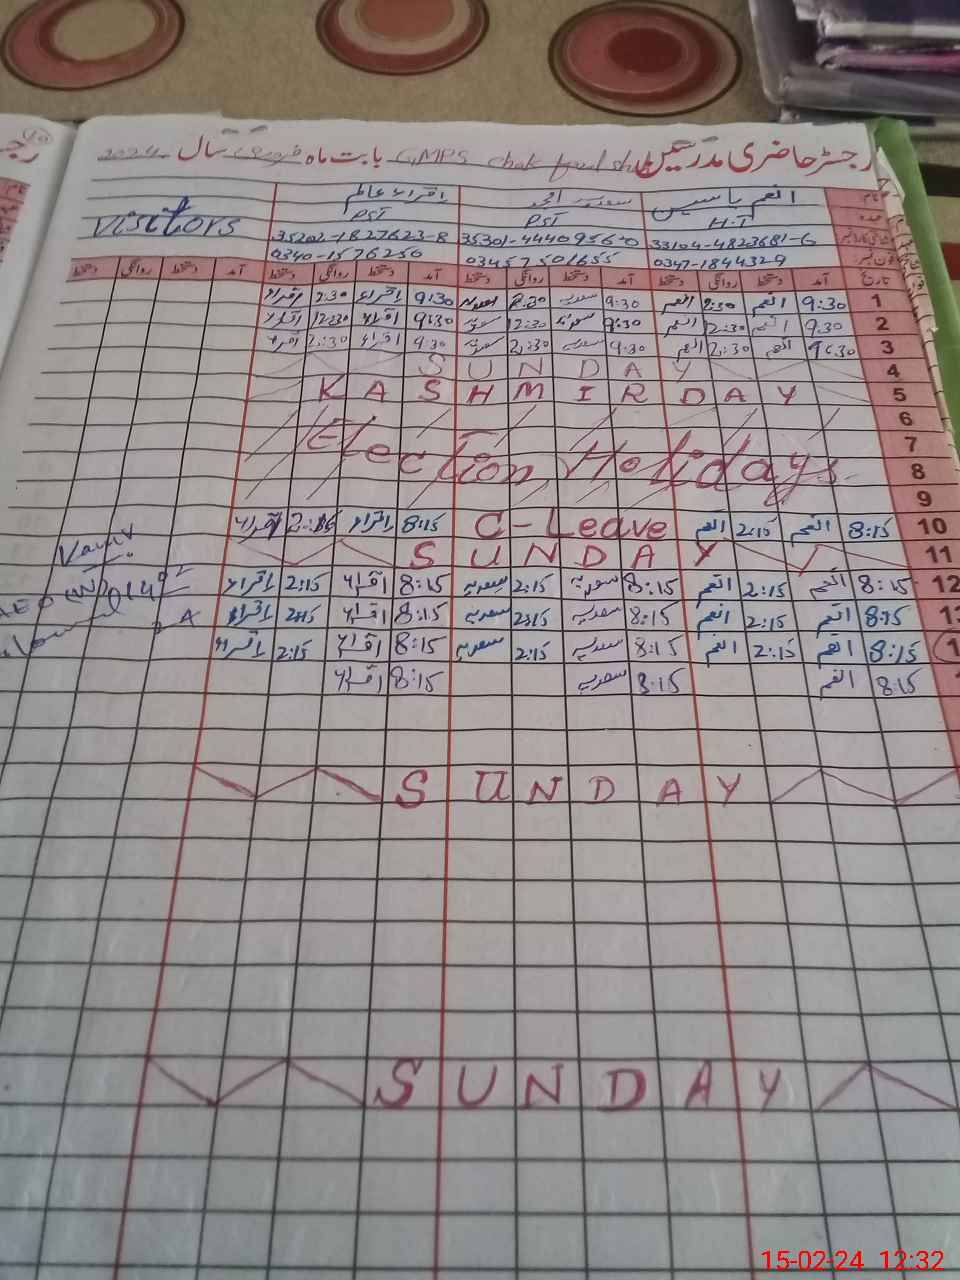 رجسٹر حاضری مدرسین GMPS Chak بابت ماہ فروری سال 2024
نام انعم یاسین سعدیہ امجد اقراء عالم Visitors
عہدہ H.T PST PST
33104-4823681-6 35301-4440956-0 35202-1827623-8
فون نمبر 0347-1844329 03457501655 0340-1576250
تاریخ آمد دستخط روانگی دستخط آمد دستخط روانگی دستخط آمد دستخط روانگی دستخط آمد دستخط روانگی دستخط
1 9:30 انعم 2:30 انعم 9:30 سعدیہ 2:30 سعدیہ 9:30 اقراء 2:30 اقراء
2 9:30 انعم 12:30 انعم 9:30 سعدیہ 12:30 سعدیہ 9:30 اقراء 12:30 اقراء
3 9:30 انعم 2:30 انعم 9:30 سعدیہ 2:30 سعدیہ 9:30 اقراء 2:30 اقراء
4 SUNDAY
5 KASHMIR DAY
6
7
8 Election Holidays
9
10 8:15 انعم 2:15 انعم C-Leave 8:15 اقراء 2:15 اقراء
11 SUNDAY
12 8:15 انعم 2:15 انعم 8:15 سعدیہ 2:15 سعدیہ 8:15 اقراء 2:15 اقراء
13 8:15 انعم 2:15 انعم 8:15 سعدیہ 2:15 سعدیہ 8:15 اقراء 2:15 اقراء
8:15 انعم 2:15 انعم 8:15 سعدیہ 2:15 سعدیہ 8:15 اقراء 2:15 اقراء
8:15 انعم 8:15 سعدیہ 8:15 اقراء
SUNDAY
SUNDAY
15-02-24 12:32